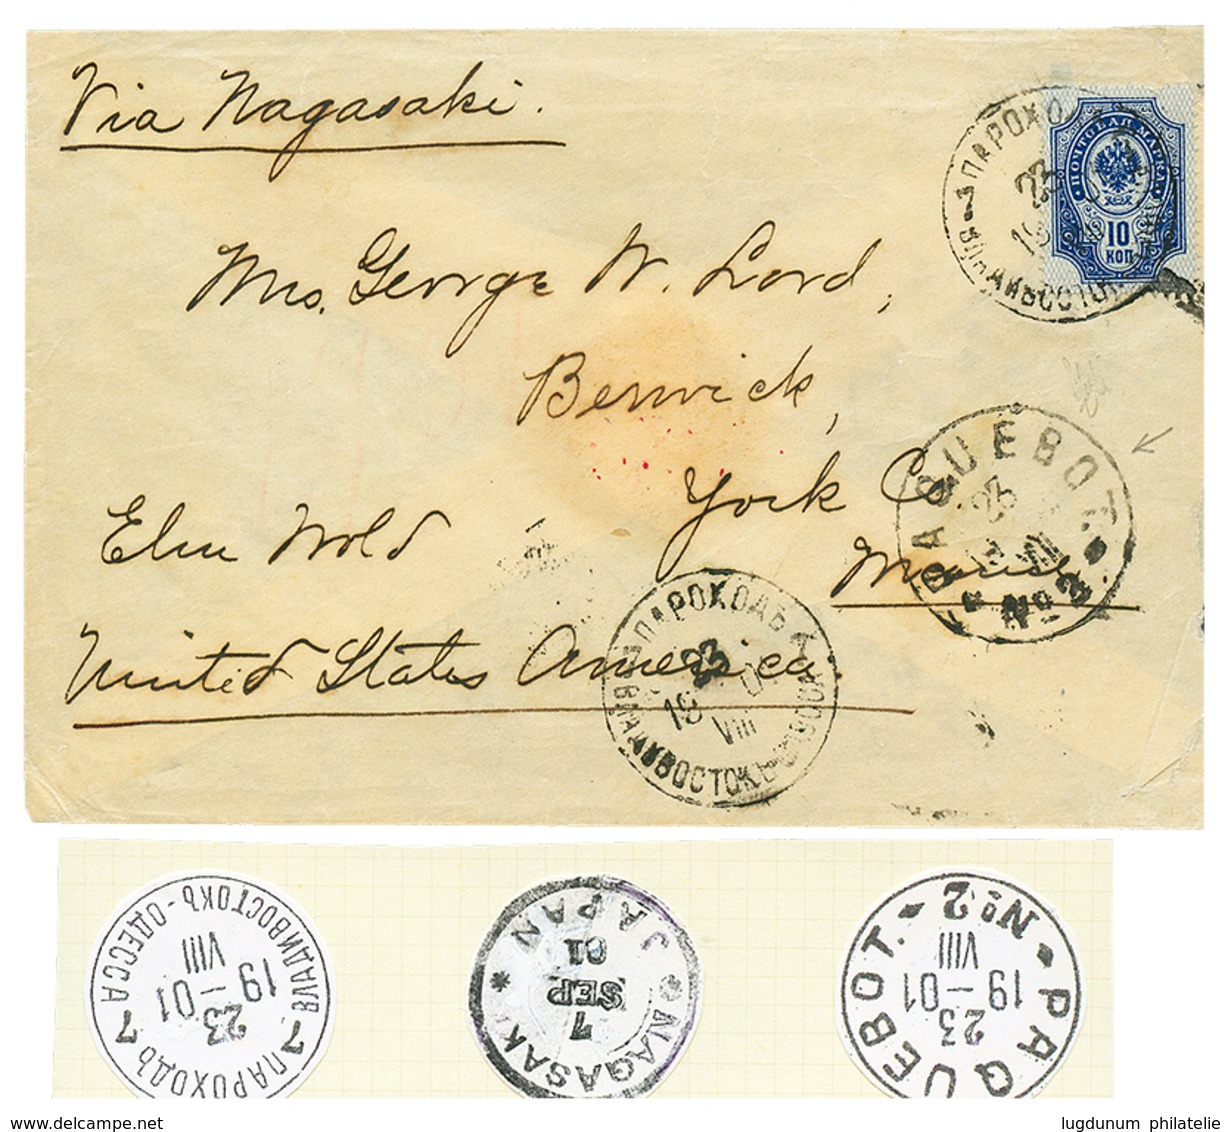 Via Nagasaki.
Mrs. George W. Lord,
Berwick,
York Co.
Elm Wold
Maine
United States America.
ПОЧТОВАЯ МАРКА
10
КОП
7 ПАРОХО
23
19
ВОСТО
PAQUEBOT.
23
VIII
No 2
ПАРОХОДЪ 7
23
19 01
VIII
ВЛАДИВОСТОКЪ
ПАРОХОДЪ
7 7
23
19-01
VIII
ВЛАДИВОСТОКЪ-ОДЕССА
NAGASAKI
7
SEP
01
JAPAN
PAQUEBOT.
23
19-01
VIII
No 2
www.delcampe.net
lugdunum philatelie